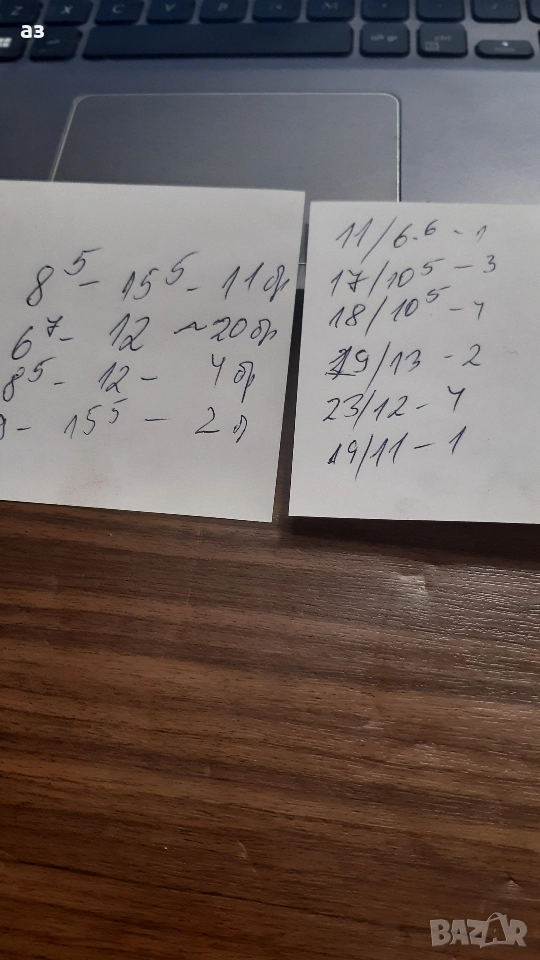 аз
8⁵ - 15⁵ - 11 бр
6⁷ - 12 ~ 20 бр
8⁵ - 12 - 4 бр
- 15⁵ - 2
11/6.6 - 1
17/10⁵ - 3
18/10⁵ - 4
19/13 - 2
23/12 - 4
19/11 - 1
BAZAR